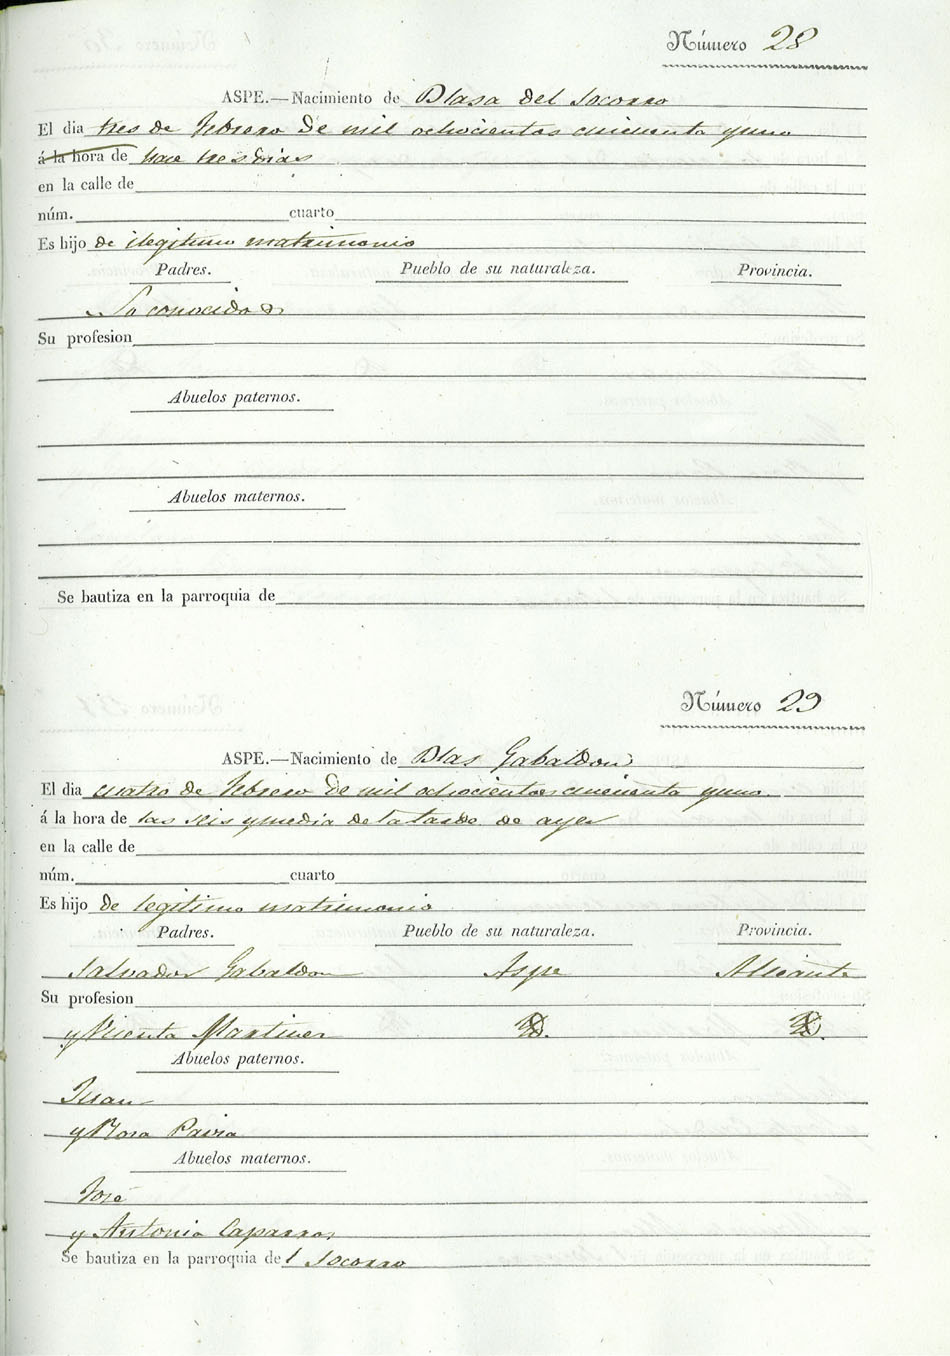 Número 28
ASPE.—Nacimiento de Blasa del Socorro
El dia tres de febrero de mil ochocientos cincuenta y uno
á la hora de hace tres dias
en la calle de
núm. cuarto
Es hijo de ilegitimo matrimonio
Padres. Pueblo de su naturaleza. Provincia.
conocidos
Su profesion
Abuelos paternos.
Abuelos maternos.
Se bautiza en la parroquia de
Número 29
ASPE.—Nacimiento de Blas Gabaldon
El dia cuatro de febrero de mil ochocientos cincuenta y uno
á la hora de las seis y media de la tarde de ayer
en la calle de
núm. cuarto
Es hijo de legitimo matrimonio
Padres. Pueblo de su naturaleza. Provincia.
Salvador Gabaldon Aspe Alicante
Su profesion
y Vicenta Martinez
Abuelos paternos.
Juan
y Rosa
Abuelos maternos.
José
y Antonia Caparros
Se bautiza en la parroquia del Socorro